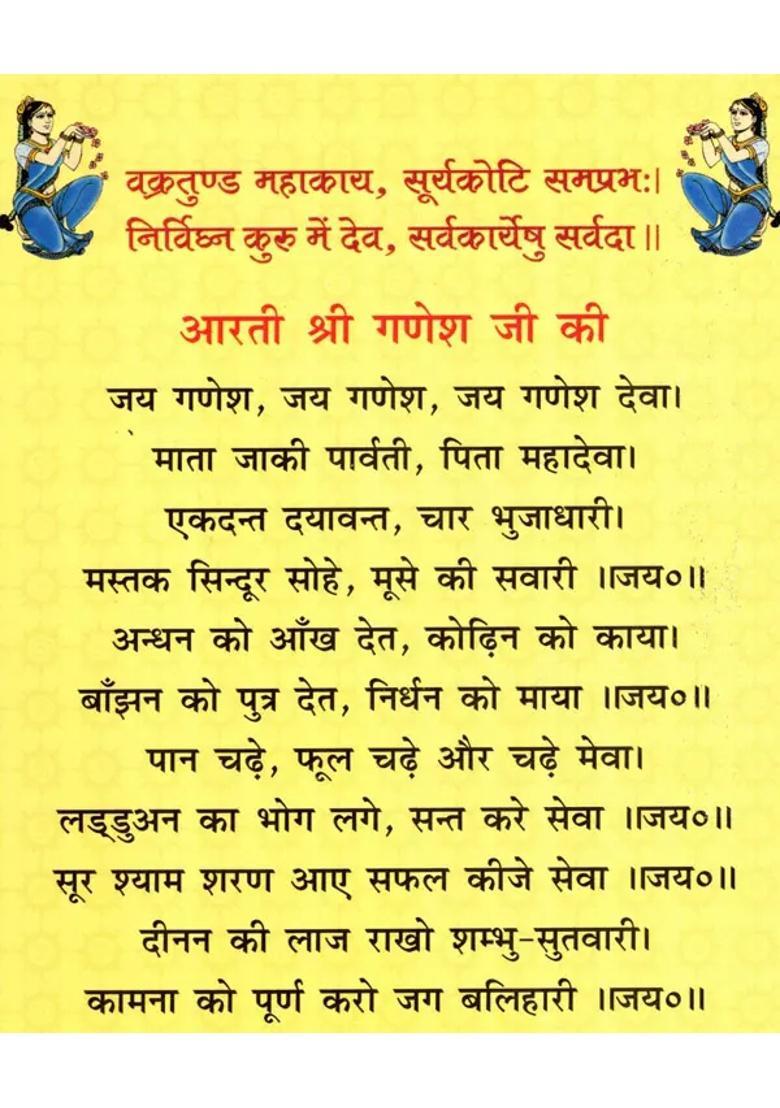 वक्रतुण्ड महाकाय, सूर्यकोटि समप्रभः।
निर्विघ्न कुरु में देव, सर्वकार्येषु सर्वदा॥
आरती श्री गणेश जी की
जय गणेश, जय गणेश, जय गणेश देवा।
माता जाकी पार्वती, पिता महादेवा।
एकदन्त दयावन्त, चार भुजाधारी।
मस्तक सिन्दूर सोहे, मूसे की सवारी ॥जय०॥
अन्धन को आँख देत, कोढ़िन को काया।
बाँझन को पुत्र देत, निर्धन को माया ॥जय०॥
पान चढ़े, फूल चढ़े और चढ़े मेवा।
लड्डुअन का भोग लगे, सन्त करे सेवा ॥जय०॥
सूर श्याम शरण आए सफल कीजे सेवा ॥जय०॥
दीनन की लाज राखो शम्भु-सुतवारी।
कामना को पूर्ण करो जग बलिहारी ॥जय०॥